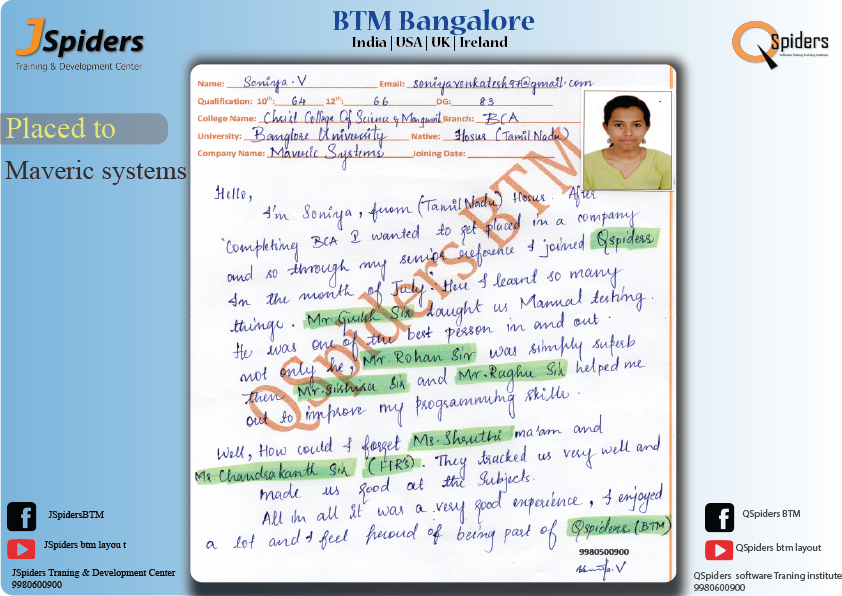 JSpiders
Training & Development Center
BTM Bangalore
India | USA | UK | Ireland
QSpiders
Software Testing Training Institute
Placed to
Maveric systems
Name: Soniya.V Email: soniyavenkatesh97@gmail.com
Qualification: 10th: 64 12th: 66 DG: 83
College Name: Christ College Of Science & Mangmnt Branch: BCA
University: Banglore University Native: Hosur (Tamil Nadu)
Company Name: Maveric Systems Joining Date:
QSpiders BTM
Hello,
I'm Soniya, from (Tamil Nadu) Hosur. After
Completing BCA I wanted to get placed in a company
and so through my senior reference I joined Qspiders
In the month of July. Here I learnt so many
things. Mr. Girish Sir taught us Manual testing.
He was one of the best person in and out.
not only he, Mr. Rohan Sir was simply superb
then Mr. Sishira Sir and Mr. Raghu Sir helped me
out to improve my programming skills.
Well, How could I forget Ms. Shruthi ma'am and
Mr Chandrakanth Sir (HR's). They tracked us very well and
made us good at the Subjects.
All in all it was a very good experience, I enjoyed
a lot and I feel proud of being part of Qspiders (BTM)
9980500900
Soniya.V
JSpidersBTM
JSpiders btm layou t
JSpiders Traning & Development Center
9980600900
QSpiders BTM
QSpiders btm layout
QSpiders software Traning institute
9980600900